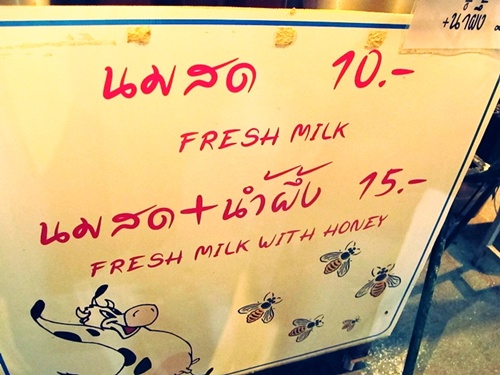 +น้ำผึ้ง
นมสด 10.-
FRESH MILK
นมสด+น้ำผึ้ง 15.-
FRESH MILK WITH HONEY